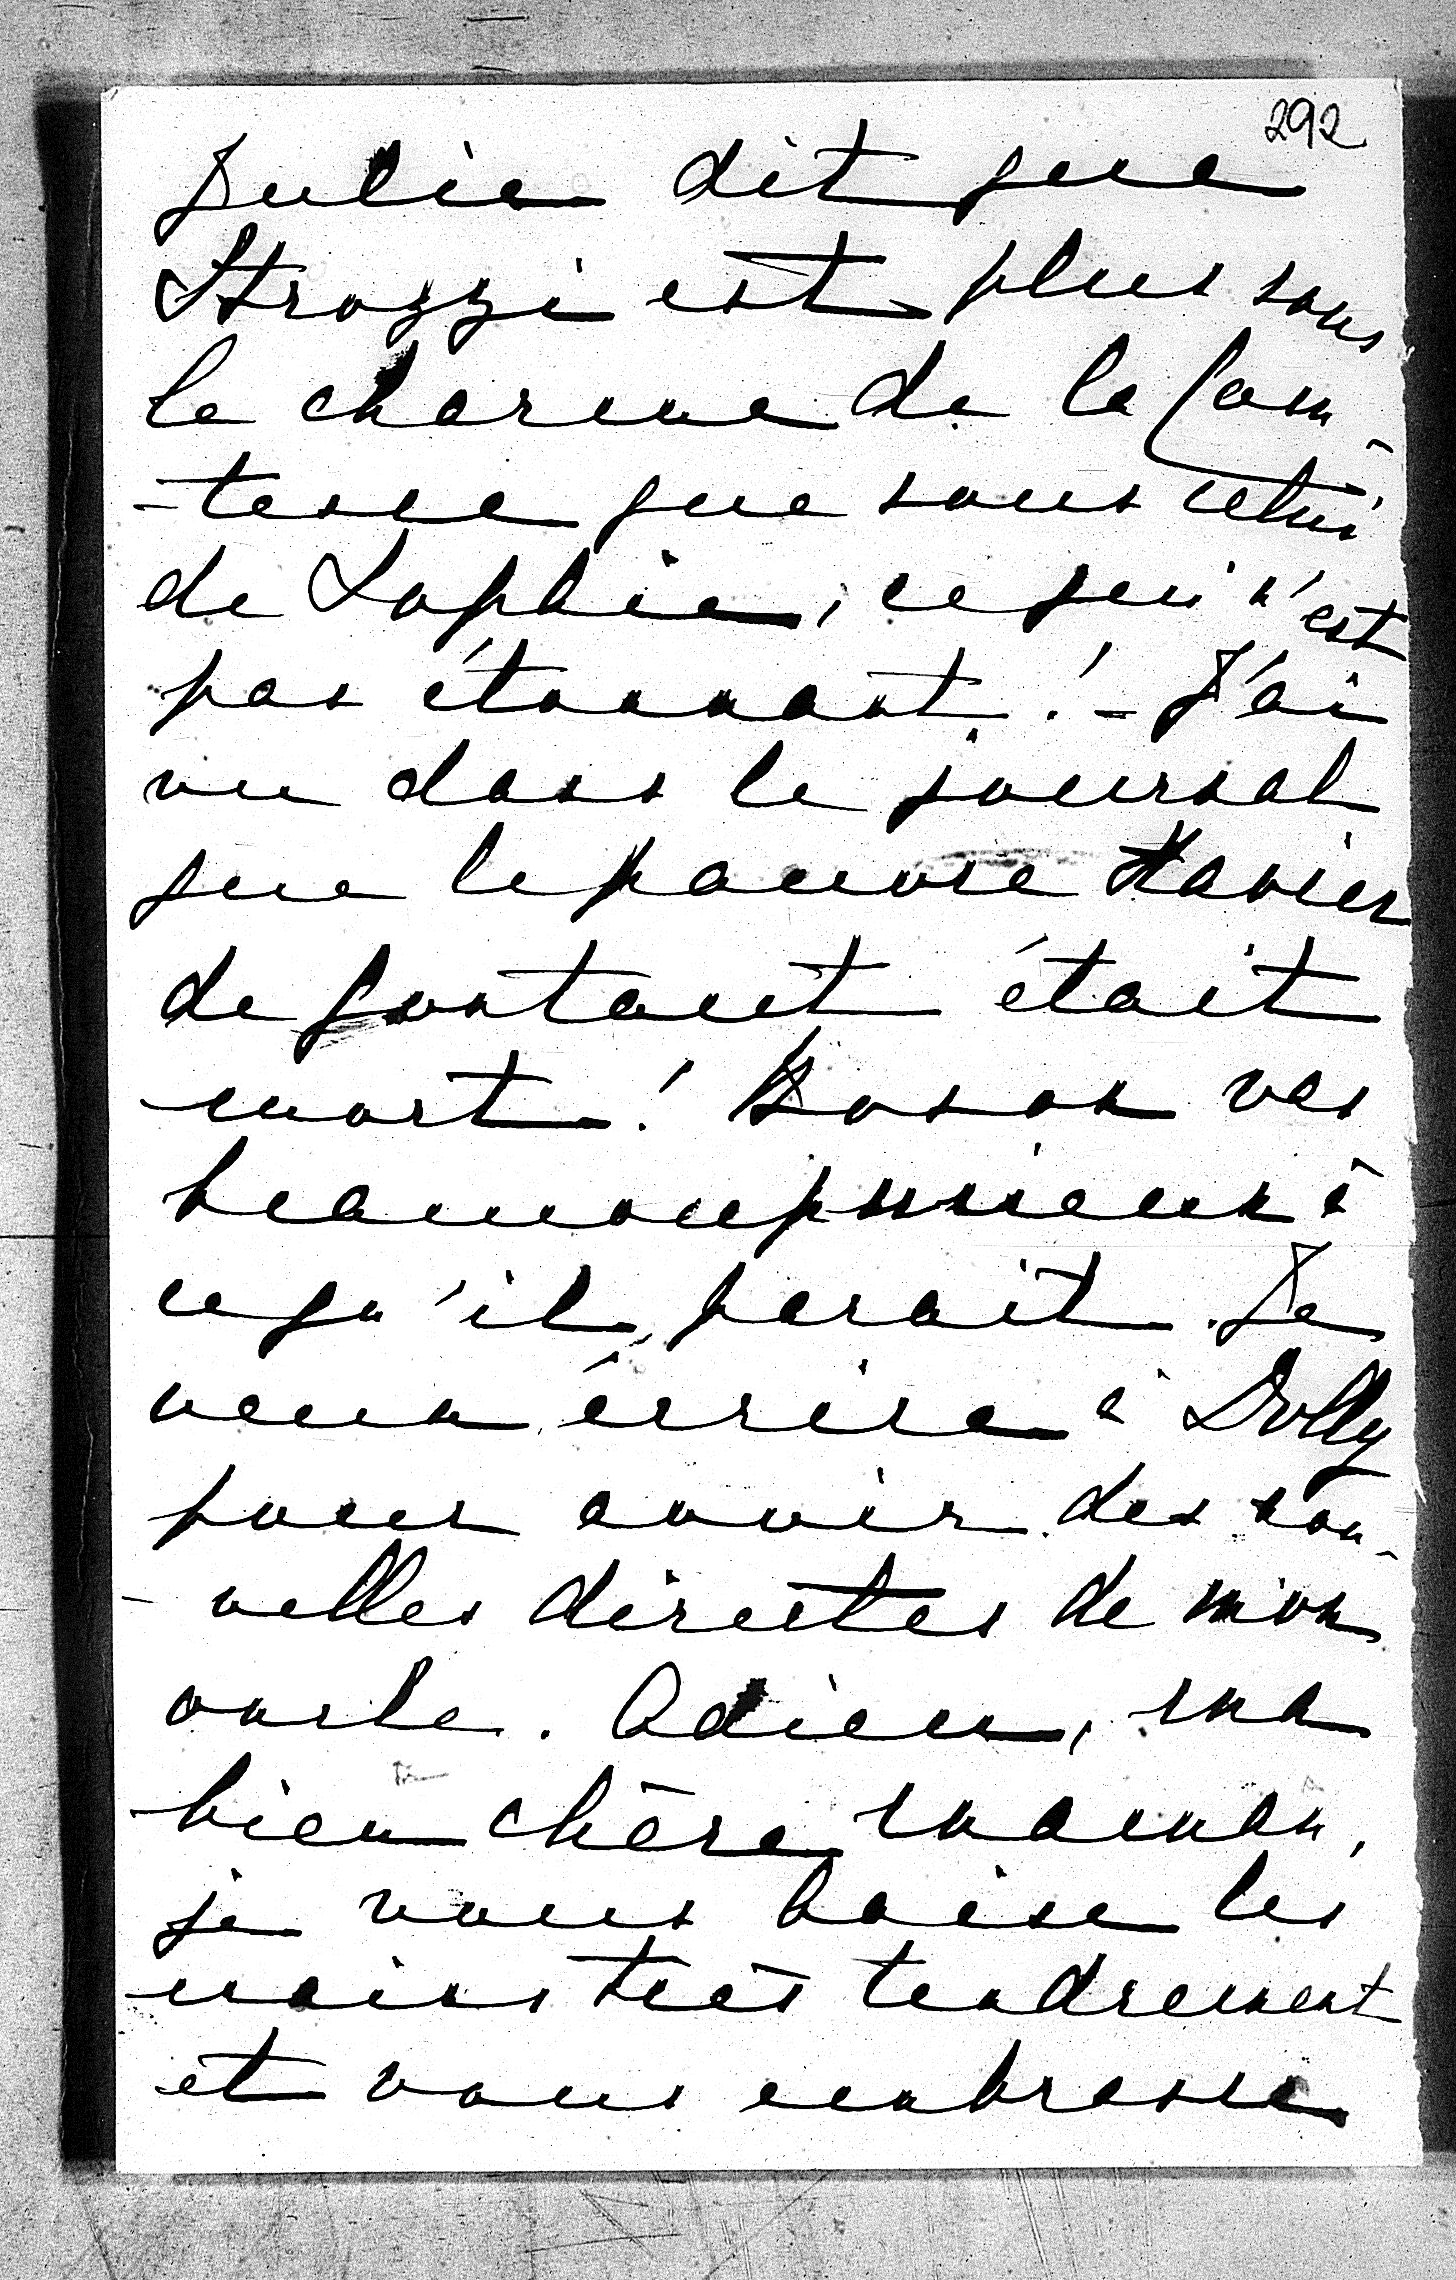 292
Julie dit que
Strozzi est plus sous
le charme de la Com-
-tesse que sous celui
de Sophie, ce qui n'est
pas étonnant! - J'ai
vu dans le journal
que le pauvre Xavier
de Gontaut était
mort! Boson va
beaucoup mieux à
ce qu'il parait. Je
veux écrire à Dolly
pour avoir des nou-
-velles directes de mon
oncle. Adieu, ma
bien chère maman,
je vous baise les
mains très tendrement
et vous embrasse